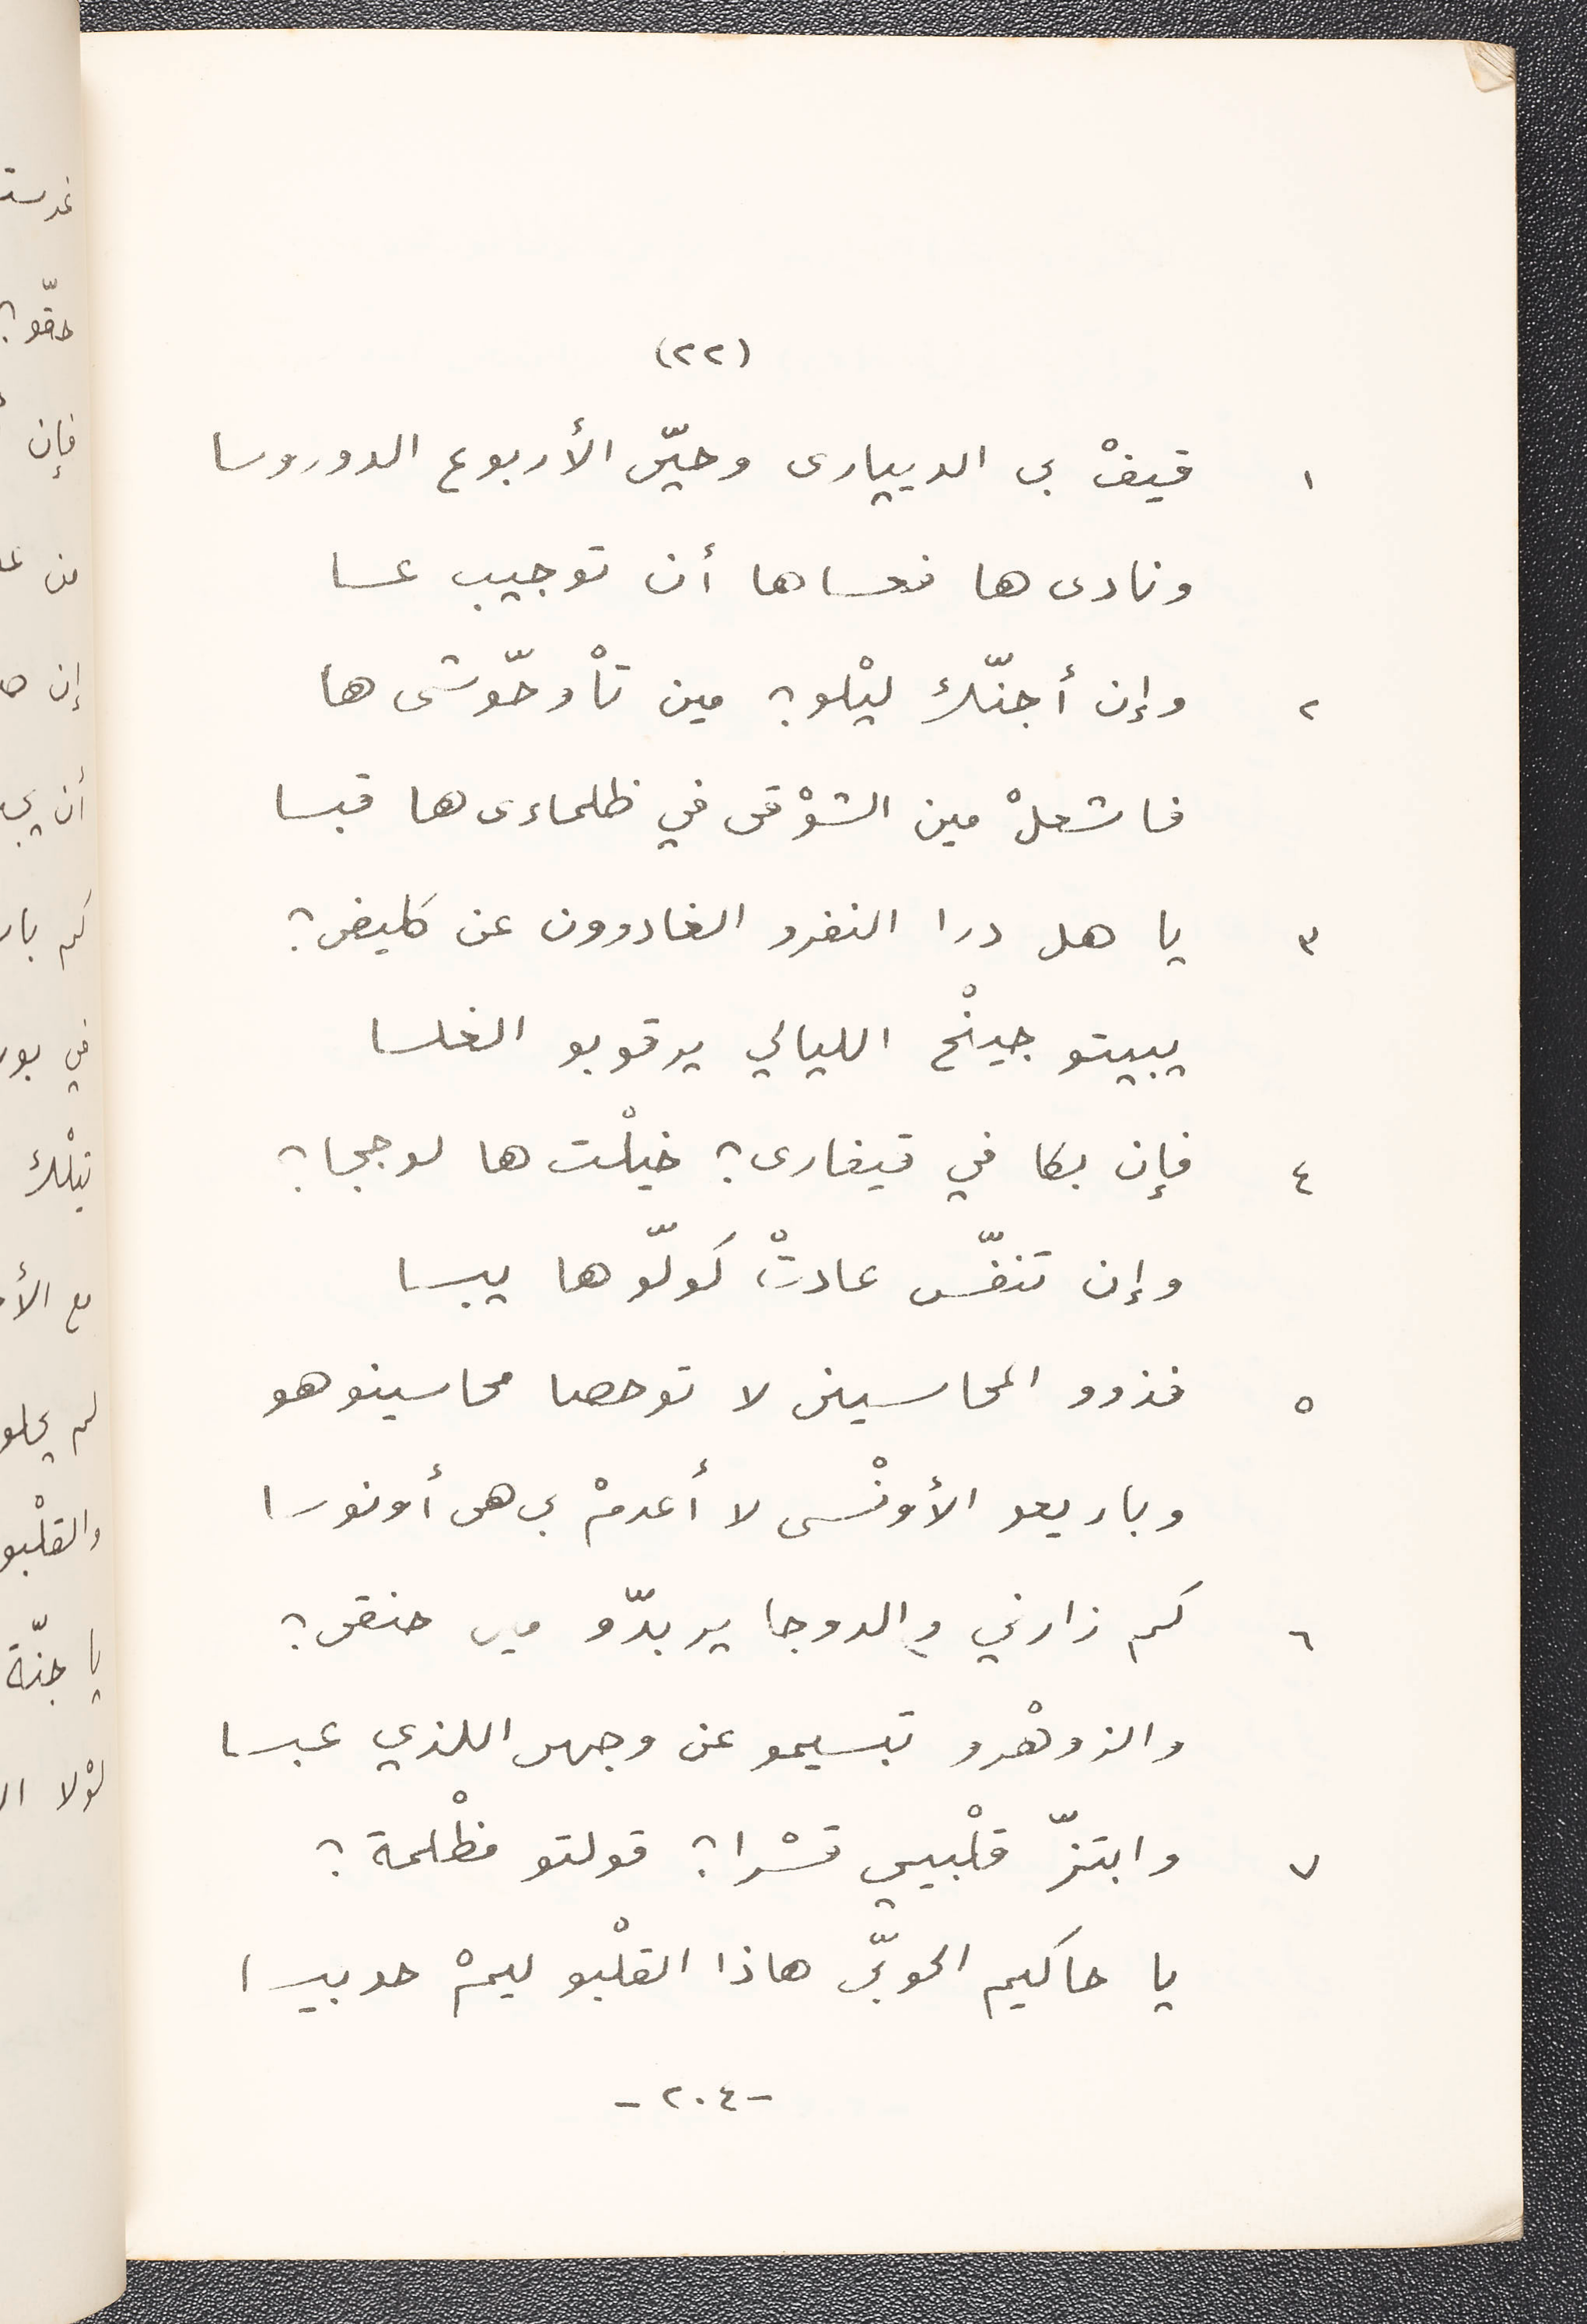 (٢٢)
١ قيفْ بى الدييارى وحيّى الأربوع الدوروسا
ونادى ها فعساها أن توجيب عسا
٢ وإن أجنّك ليْلو؟ مين تأْوحّوشى ها
فاشعلْ مين الشوْقى في ظلماءى ها قبسا
٣ يا هل درا النفرو الغادوون عن كليفى؟
يبييتو جينْح الليالي يرقوبو الغلسا
٤ فإن بكا في قيفارى؟ خيلْت ها لوججا؟
وإن تنفّس عادتْ كولّوها يبسا
٥ فذوو المحاسينى لا توحصا محاسينوهو
وباريعو الأونْسى لا أعدمْ بى هى أونوسا
٦ كم زارني والدوجا يربدّو مين حنقى؟
والزوهْرو تبسيمو عن وجهى اللذي عبسا
٧ وابتزّ قلْبيي قسْرا؟ قولتو مظْلمة؟
يا حاكيم الحوبّى هاذا القلْبو ليمْ حوبيسا
-٢٠٤-